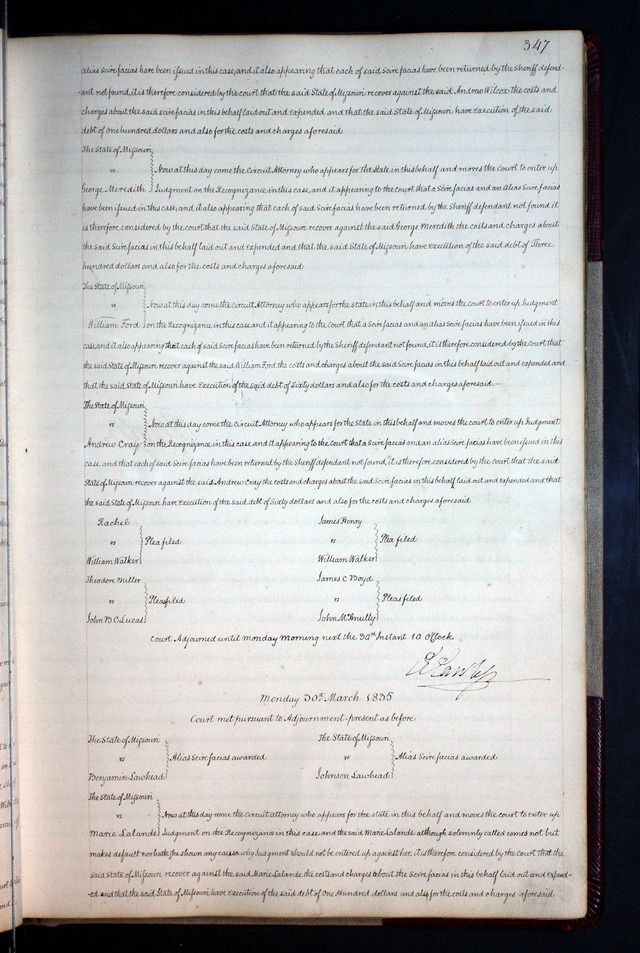 347
alias scire facias have been issued in this case, and it also appearing that each of said Scire facias have been returned by the Sheriff defend-
-ant not found, it is therefore considered by the court that the said State of Missouri recover against the said Andrew Wilcox the costs and
charges about the said scire facias in this behalf laid out and Expended and that the said State of Missouri have Execution of the said
debt of One hundred dollars and also for the costs and charges aforesaid
The State of Missouri
vs Now at this day come the Circuit Attorney who appears for The State in this behalf and moves the Court to enter up
George Meredith Judgment on the Recognizance in this case, and it appearing to the court that a Scire facias and an Alias Scire facias
have been issued in this case, and it also appearing that each of said Scire facias have been returned by the Sheriff defendant not found it
is therefore considered by the court that the said State of Missouri recover against the said George Meredith the costs and charges about
the said Scire facias in this behalf laid out and Expended and that the said State of Missouri have Execution of the said debt of Three
hundred dollars and also for the costs and charges aforesaid
The State of Missouri
vs Now at this day come the Circuit Attorney who appears for the State in this behalf and moves the court to enter up Judgment
William Ford on the Recognizance in this case and it appearing to the Court that a Scire facias and an alias Scire facias have been issued in this
case, and it also appearing that each of said Scire facias have been returned by the Sheriff defendant not found, it is therefore considered by the Court that
the said State of Missouri recover against the said William Ford the costs and charges about the said Scire facias in this behalf laid out and expended and
that the said State of Missouri have Execution of the said debt of Sixty dollars and also for the costs and charges aforesaid.—
The State of Missouri
vs Now at this day come the Circuit Attorney who appears for the State in this behalf and moves the court to enter up Judgment
Andrew Cray on the Recognizance, in this case, and it appearing to the court that a Scire facias and an alias Scire facias have been issued in this
case and that each of said Scire facias have been returned by the Sheriff defendant not found, it is therefore considered by the Court that the said
State of Missouri recover against the said Andrew Cray the costs and charges about the said Scire facias in this behalf laid out and Expended and that
the said State of Missouri have Execution of the said debt of Sixty dollars and also for the costs and charges aforesaid
Rachel
vs Plea filed
William Walker
James Henry
vs Plea filed
William Walker
Theodore Miller
vs Pleas filed
John B C Lucas
James C Boyd
vs Pleas filed
John
Court Adjourned until Monday Morning next the 30th Instant 10 O'Clock
Monday 30th March 1835
Court met pursuant to Adjournment - present as before
The State of Missouri
vs Alias Scire facias awarded
Benjamin Lawhead
The State of Missouri
vs Alias Scire facias awarded
Johnson Lawhead
The State of Missouri
vs Now at this day come the Circuit attorney who appears for the state in this behalf and moves the court to enter up
Marie Lalande Judgment on the Recognizance in this case, and the said Marie Lalande although solemnly called comes not but
makes default nor hath she shown any cause why Judgment should not be entered up against her, it is therefore considered by the Court that the
said State of Missouri recover against the said Marie Lalande the costs and charges about the Scire facias in this behalf laid out and Expend-
-ed and that the said State of Missouri have Execution of the said debt of One Hundred dollars and also for the costs and charges aforesaid